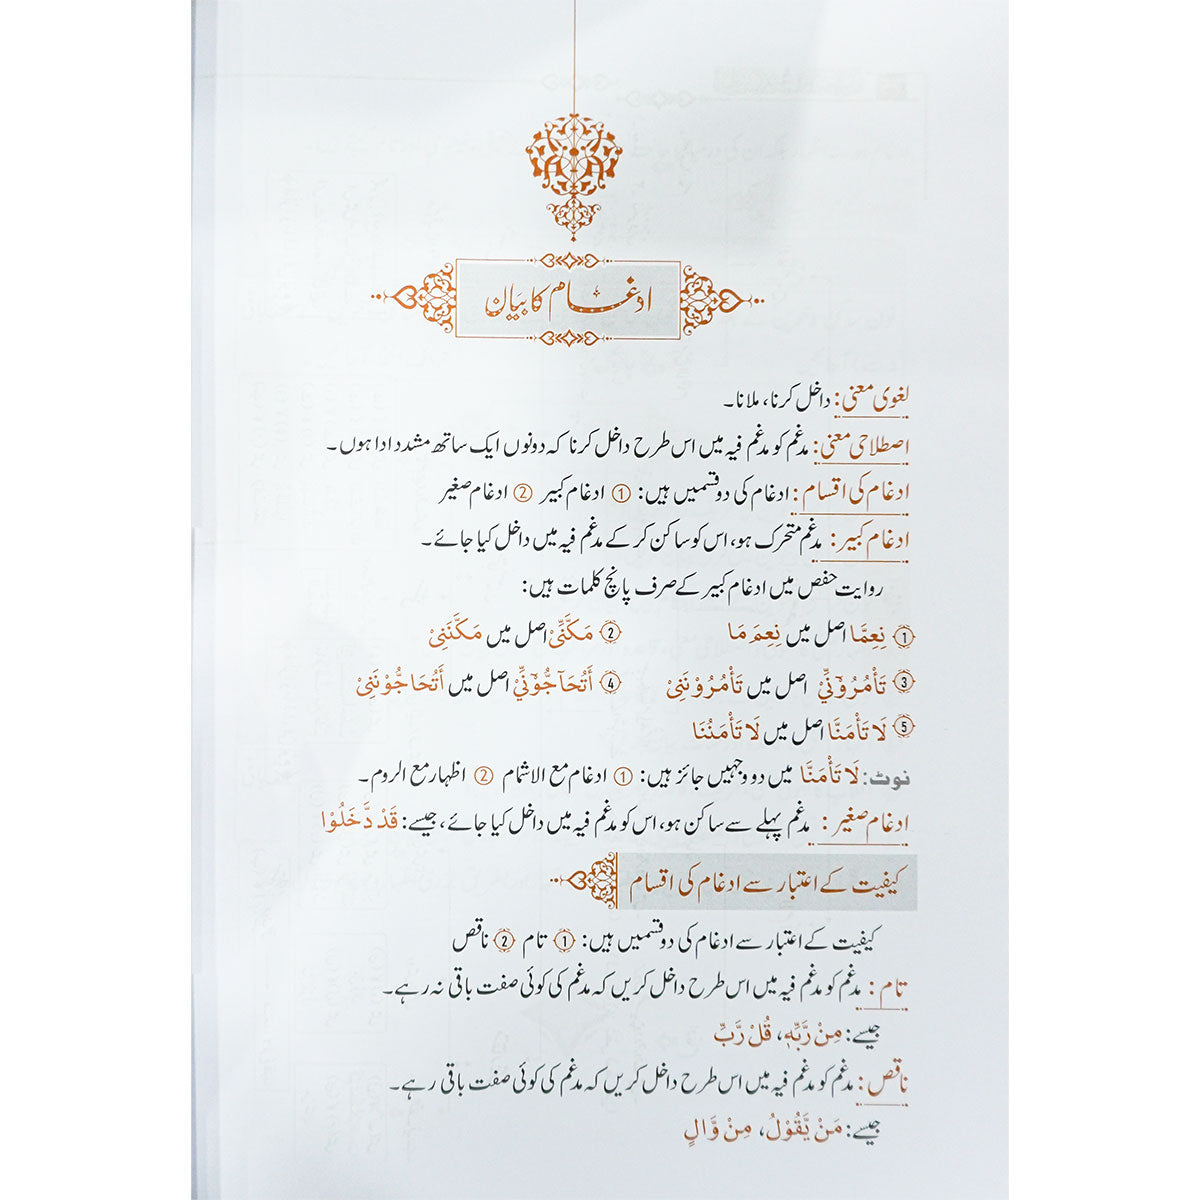 ادغام کا بیان
لغوی معنی: داخل کرنا، ملانا۔
اصطلاحی معنی: مدغم کو مدغم فیہ میں اس طرح داخل کرنا کہ دونوں ایک ساتھ مشدد ادا ہوں۔
ادغام کی اقسام: ادغام کی دو قسمیں ہیں: ① ادغام کبیر ② ادغام صغیر
ادغام کبیر: مدغم متحرک ہو، اس کو ساکن کر کے مدغم فیہ میں داخل کیا جائے۔
روایت حفص میں ادغام کبیر کے صرف پانچ کلمات ہیں:
① نِعِمَّا اصل میں نِعِمَ مَا ② مَكَّنِّیْ اصل میں مَكَّنَنِیْ
③ تَأْمُرُوْٓنِّیْ اصل میں تَأْمُرُوْنَنِیْ ④ أَتُحَآجُّوْٓنِّیْ اصل میں أَتُحَاجُّوْنَنِیْ
⑤ لَا تَأْمَنَّا اصل میں لَا تَأْمَنُنَا
نوٹ: لَا تَأْمَنَّا میں دو وجہیں جائز ہیں: ① ادغام مع الاشمام ② اظہار مع الروم۔
ادغام صغیر: مدغم پہلے سے ساکن ہو، اس کو مدغم فیہ میں داخل کیا جائے، جیسے: قَدْ دَّخَلُوْا
کیفیت کے اعتبار سے ادغام کی اقسام
کیفیت کے اعتبار سے ادغام کی دو قسمیں ہیں: ① تام ② ناقص
تام: مدغم کو مدغم فیہ میں اس طرح داخل کریں کہ مدغم کی کوئی صفت باقی نہ رہے۔
جیسے: مِنْ رَّبِّهٖ، قُلْ رَّبِّ
ناقص: مدغم کو مدغم فیہ میں اس طرح داخل کریں کہ مدغم کی کوئی صفت باقی رہے۔
جیسے: مَنْ يَّقُوْلُ، مِنْ وَّالٍ